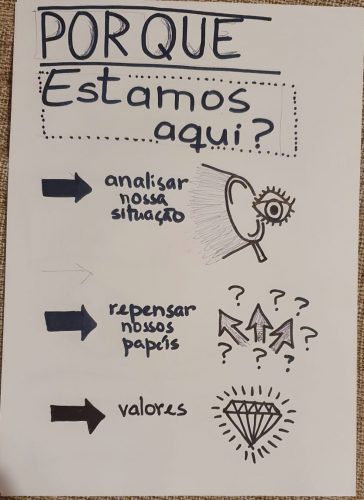 POR QUE
Estamos
aqui?
analisar
nossa
situação
repensar
nossos
papéis
? ? ? ?
? ? ?
valores